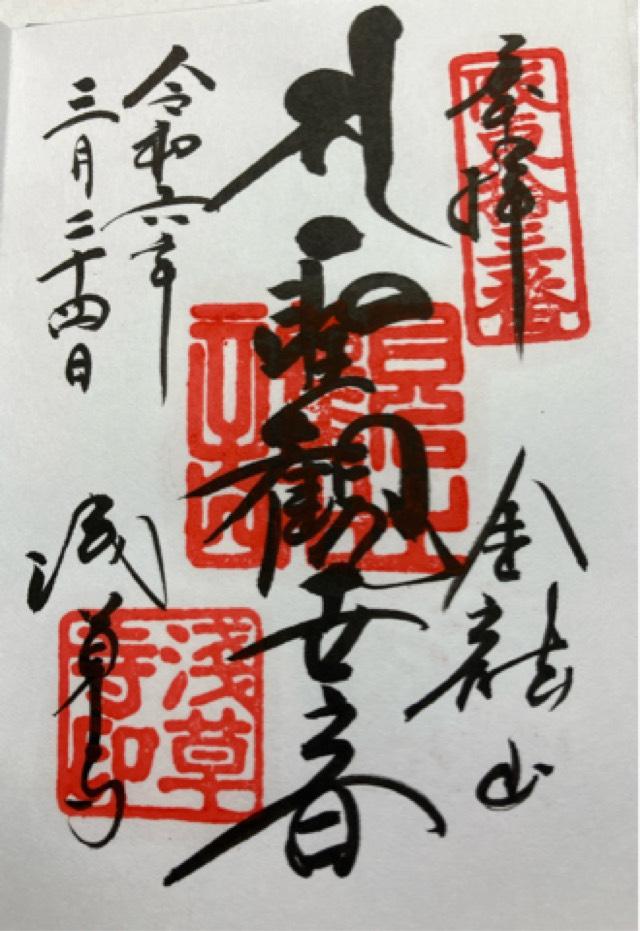 奉拝
坂東拾三番
金龍山
聖観世音
令和六年
三月二十四日
浅草寺
浅草寺印